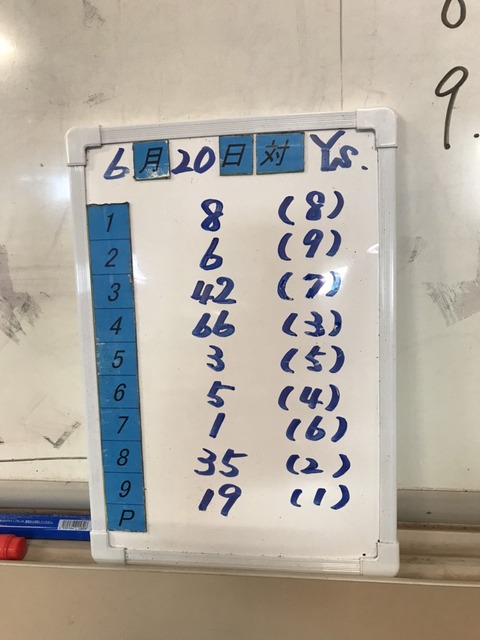 8
9.
6月20日対 Ys.
1 8 (8)
2 6 (9)
3 42 (7)
4 66 (3)
5 3 (5)
6 5 (4)
7 1 (6)
8 35 (2)
9 19 (1)
P